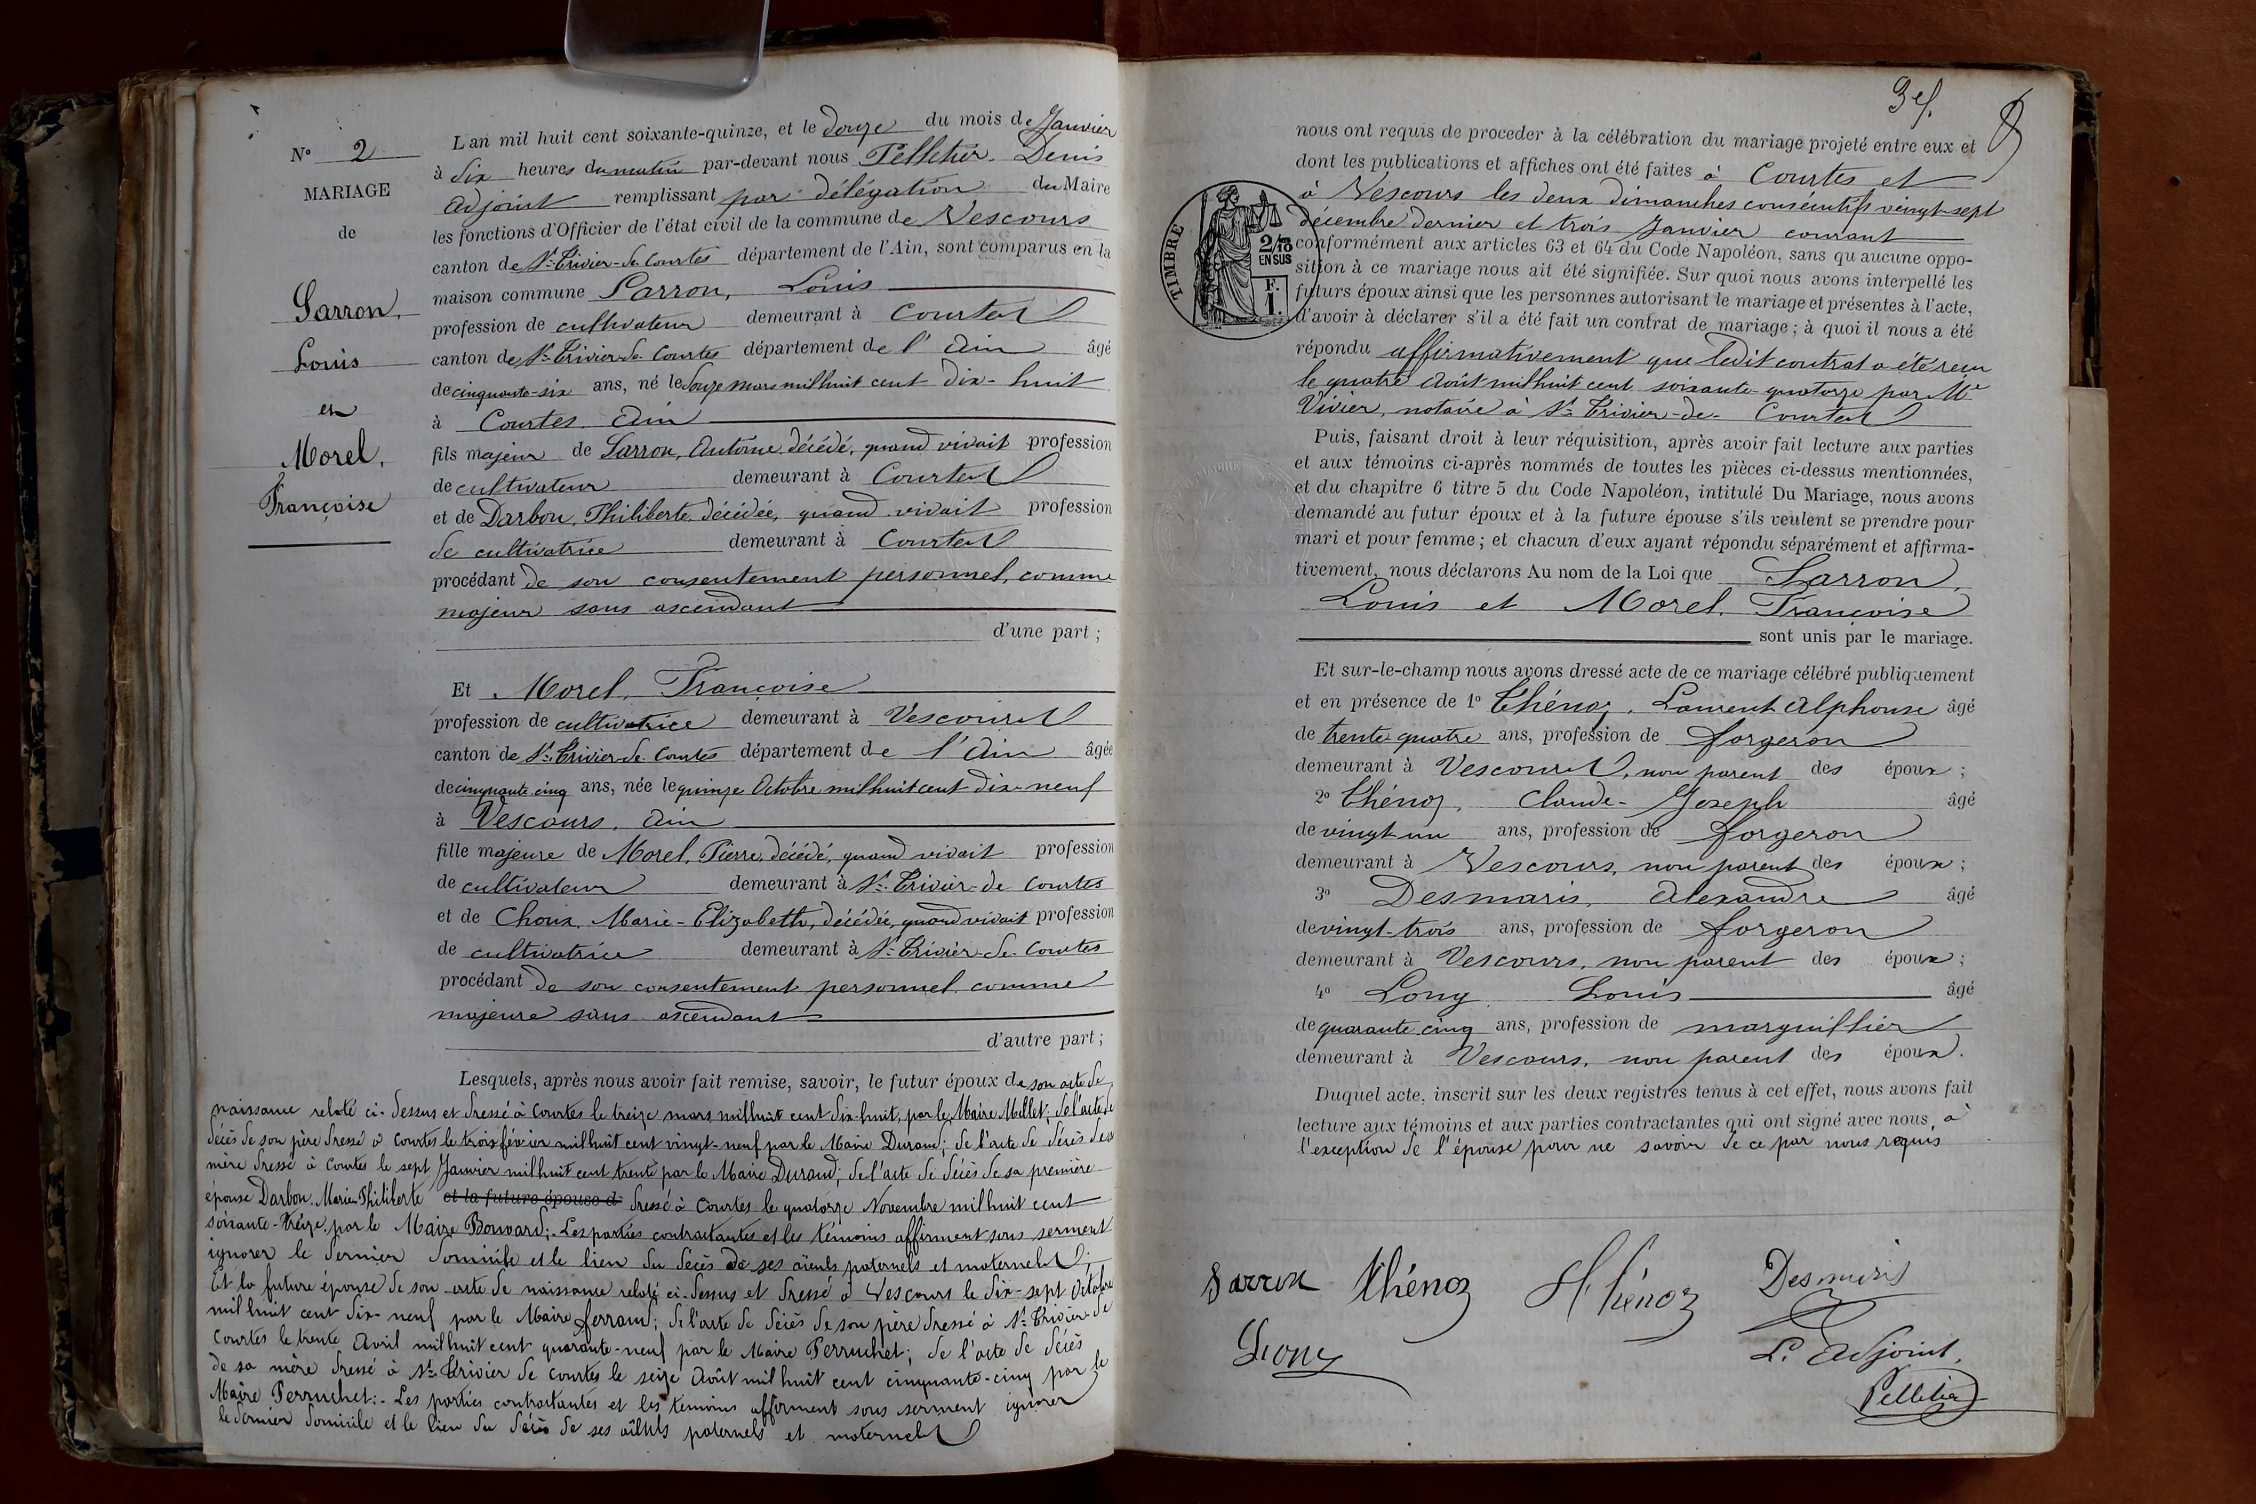 N° 2
MARIAGE
de
Sarron,
Louis
et
Morel,
Françoise
L'an mil huit cent soixante-quinze, et le douze du mois de Janvier
à dix heures du matin par-devant nous Pelletier Denis
adjoint remplissant par délégation du Maire
les fonctions d'Officier de l'état civil de la commune de Vescours
canton de St Trivier-de-Courtes département de l'Ain, sont comparus en la
maison commune Sarron, Louis
profession de cultivateur demeurant à Courtes
canton de St Trivier-de Courtes département de l'Ain âgé
de cinquante-six ans, né le douze mars mil huit cent dix-huit
à Courtes Ain
fils majeur de Sarron, Antoine, décédé, quand vivait profession
de cultivateur demeurant à Courtes
et de Darbon, Philiberte, décédée, quand vivait profession
de cultivatrice demeurant à Courtes
procédant de son consentement personnel, comme
majeur sans ascendant
d'une part ;
Et Morel, Françoise
profession de cultivatrice demeurant à Vescours
canton de St Trivier-de-Courtes département de l'Ain âgée
de cinquante cinq ans, née le quinze Octobre mil huit cent dix-neuf
à Vescours, Ain
fille majeure de Morel, Pierre, décédé, quand vivait profession
de cultivateur demeurant à St Trivier-de Courtes
et de Choux, Marie-Elizabeth, décédée, quand vivait profession
de cultivatrice demeurant à St Trivier-de-Courtes
procédant de son consentement personnel comme
majeure sans ascendant
d'autre part ;
Lesquels, après nous avoir fait remise, savoir, le futur époux de son acte de
naissance relaté ci-dessus et dressé à Courtes le treize mars mil huit cent dix-huit, par le Maire Millet; de l'acte de
décès de son père dressé à Courtes le trois février mil huit cent vingt-neuf par le Maire Durand; de l'acte de décès de sa
mère dressé à Courtes le sept Janvier mil huit cent trente par le Maire Durand; de l'acte de décès de sa première
épouse Darbon, Marie-Philiberte et la future épouse d dressé à Courtes le quatorze Novembre mil huit cent
soixante-treize, par le Maire Bouvard;- Les parties contractantes et les témoins affirment sous serment
ignorer le dernier domicile et le lieu du décès de ses aïeuls paternels et maternels;
Et la future épouse de son acte de naissance relaté ci-dessus et dressé à Vescours le dix-sept Octobre
mil huit cent dix-neuf par le Maire ferrand; de l'acte de décès de son père dressé à St Trivier-de
Courtes le trente Avril mil huit cent quarante-neuf par le Maire Perruchet; de l'acte de décès
de sa mère dressé à St Trivier de Courtes le seize Août mil huit cent cinquante-cinq par le
Maire Perruchet:- Les parties contractantes et les témoins affirment sous serment ignorer
le dernier domicile et le lieu du décès de ses aïeuls paternels et maternels
3 ef.
nous ont requis de proceder à la célébration du mariage projeté entre eux et
dont les publications et affiches ont été faites à Courtes et
à Vescours les deux dimanches consécutifs vingt-sept
décembre dernier et trois Janvier courant
TIMBRE
2/10
EN SUS
F.
1.
conformément aux articles 63 et 64 du Code Napoléon, sans qu'aucune oppo-
sition à ce mariage nous ait été signifiée. Sur quoi nous avons interpellé les
futurs époux ainsi que les personnes autorisant le mariage et présentes à l'acte,
d'avoir à déclarer s'il a été fait un contrat de mariage ; à quoi il nous a été
répondu affirmativement que ledit contrat a été reçu
le quatre Août mil huit cent soixante-quatorze par Me
Vivier, notaire à St Trivier-de-Courtes
Puis, faisant droit à leur réquisition, après avoir fait lecture aux parties
et aux témoins ci-après nommés de toutes les pièces ci-dessus mentionnées,
et du chapitre 6 titre 5 du Code Napoléon, intitulé Du Mariage, nous avons
demandé au futur époux et à la future épouse s'ils veulent se prendre pour
mari et pour femme ; et chacun d'eux ayant répondu séparément et affirma-
tivement, nous déclarons Au nom de la Loi que Sarron,
Louis et Morel, Françoise
sont unis par le mariage.
Et sur-le-champ nous avons dressé acte de ce mariage célébré publiquement
et en présence de 1° Thénoz, Laurent Alphonse âgé
de trente-quatre ans, profession de forgeron
demeurant à Vescours, non parent des époux ;
2° Thénoz, Claude-Joseph âgé
de vingt-un ans, profession de forgeron
demeurant à Vescours, non parent des époux ;
3° Desmaris, Alexandre âgé
de vingt-trois ans, profession de forgeron
demeurant à Vescours, non parent des époux ;
4° Long Louis âgé
de quarante-cinq ans, profession de marguillier
demeurant à Vescours, non parent des époux.
Duquel acte, inscrit sur les deux registres tenus à cet effet, nous avons fait
lecture aux témoins et aux parties contractantes qui ont signé avec nous, à
l'exception de l'épouse pour ne savoir de ce par nous requis
Sarron Thénoz Thénoz Desmaris
Long
L'Adjoint,
Pelletier